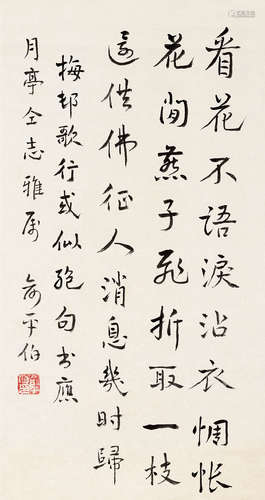 看花不語淚沾衣惆悵
花間燕子飛折取一枝
還供佛征人消息幾時歸
梅邨歌行或似絶句書應
月亭仝志雅屬 俞平伯